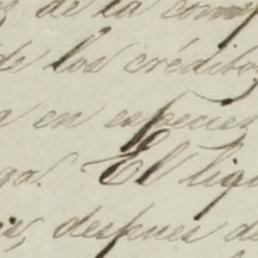 de la com
de los créditos
en especies
go. El liqu
despues de